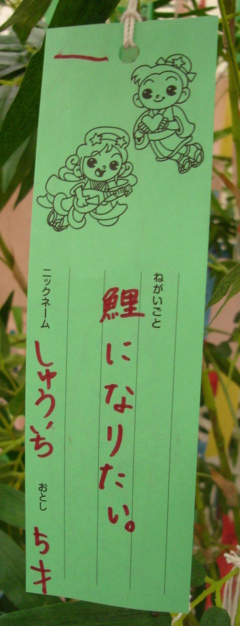 一
ねがいごと
鯉になりたい。
ニックネーム しゅういち おとし 5才